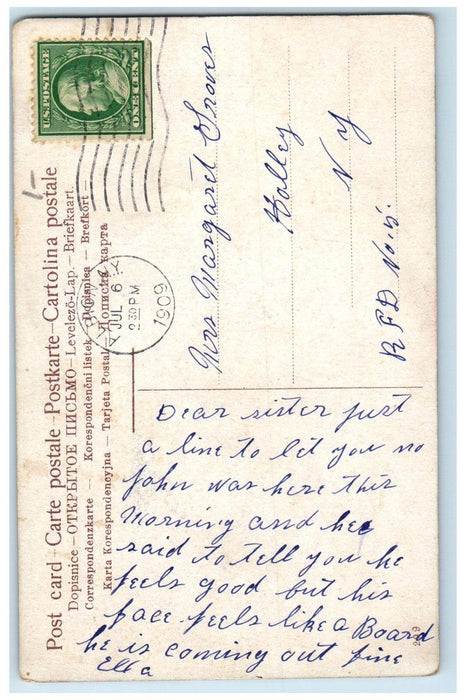 U.S. POSTAGE
ONE CENT
Post card – Carte postale – Postkarte – Cartolina postale
Dopisnice – ОТКРЫТОЕ ПИСЬМО – Levelező-Lap. – Briefkaart
Correspondenzkarte – Korespondenční listek – Dopisnica – Brefkort –
Karta Korespondencyjna – Tarjeta Postal – Пописна карта
N.Y.
JUL 6
2 30 P.M.
1909
Mrs Margaret
Holley
N y
R F D No. 5.
Dear sister just
a line to let you no
John was here this
Morning and he
said to tell you he
feels good but his
face feels like a Board
he is coming out fine
Ella